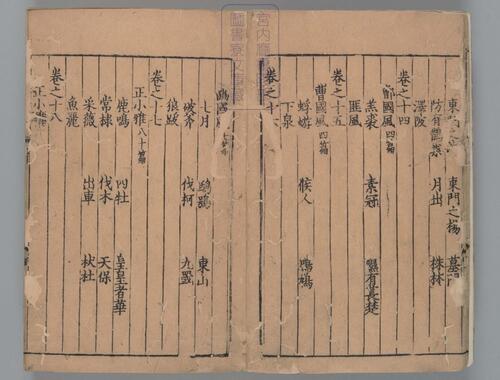 東門之 東門之楊 墓門
防有鵲巢 月出 株林
澤陂
卷之十四
國風四篇
羔裘 素冠 隰有萇楚
匪風
卷之十五
曹國風四篇
蜉蝣 候人 鳲鳩
下泉
卷之十六
宮内廳
圖書寮文庫
七月 鴟鴞 東山
破斧 伐柯 九罭
狼跋
卷之十七
正小雅八十篇
鹿鳴 四牡 皇皇者華
常棣 伐木 天保
采薇 出車 杕杜
魚麗
卷之十八
正小雅